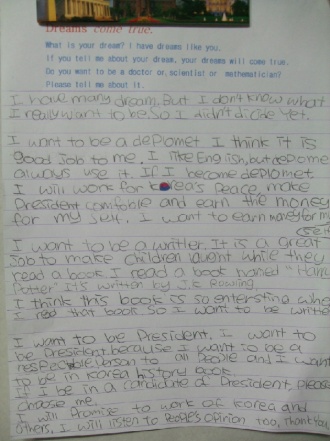 Dreams come true.
What is your dream? I have dreams like you.
If you tell me about your dream, your dreams will come true.
Do you want to be a doctor or, scientist or mathematician?
Please tell me about it.
I have many dream. But I don't know what
I really want to be. So I didn't dicide yet.
I want to be a deplomet I think it is
good Job to me. I like English, but deplome
always use it. If I become deplomet
I will work for Korea's Peace, make
President comfoble and earn the money
for my self. I want to earn money for my
self
I want to be a writter. It is a Great
Job to make children quent while they
read a book. I read a book named "Harry
Potter" It's written by J.K Rowling.
I think this book is so entersting when
I red that book. So I want to be writte
I want to be President, I want to
be President because I want to be a
respectable Person to all People and I want
to be in korea history book.
If I be in a candidate of President, please
choose me.
I will Promise to work of korea and
others. I will listen to People's opinion too, Thank you